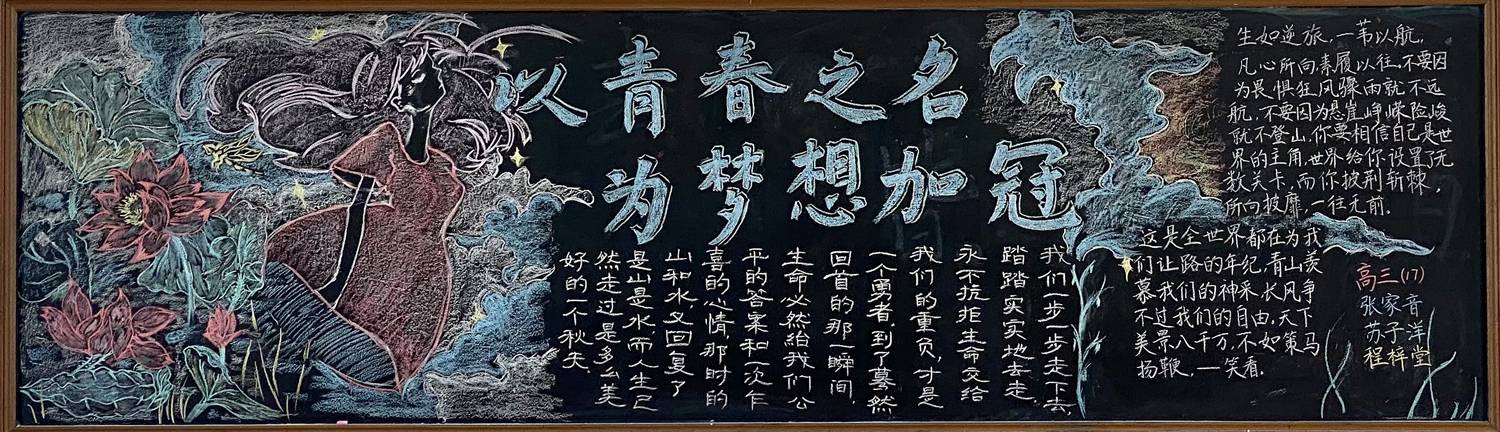 以青春之名
为梦想加冠
我们一步一步走下去,
踏踏实实地去走,
永不抗拒生命交给
我们的重负,才是
一个勇者,到了蓦然
回首的那一瞬间,
生命必然给我们公
平的答案和一次乍
喜的心情,那时的
山和水,又回复了
是山是水,而人生已
然走过是多么美
好的一个秋天
生如逆旅,一苇以航,
凡心所向,素履以往,不要因
为畏惧狂风骤雨就不远
航,不要因为悬崖峥嵘险峻
就不登山,你要相信自己是世
界的主角,世界给你设置了无
数关卡,而你披荆斩棘,
所向披靡,一往无前.
这是全世界都在为我
们让路的年纪,青山羡
慕我们的神采,长风争
不过我们的自由,天下
美景八千万,不如策马
扬鞭,一笑看.
高三(17)
张家音
苏子洋
程梓堂